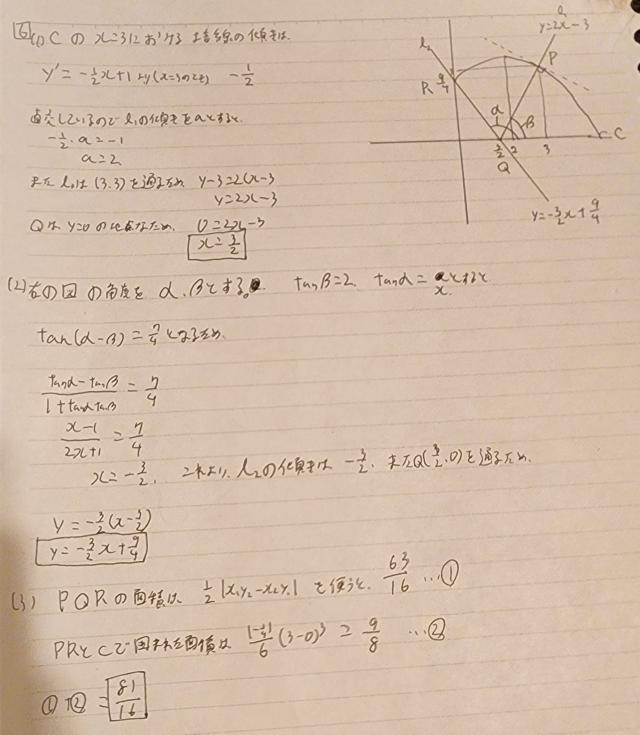 6 (1) C の x=3における接線の傾きは
y'=-1/2x+1より(x=3のとき) -1/2
直交しているので l₁の傾きをaとすると
-1/2・a=-1
a=2
また l₁は (3,3)を通るため y-3=2(x-3
y=2x-3
Qは y=0 の地点なため、 0=2x-3
x=3/2
y=2x-3
l₂
P
R 9/4
α
β
C
3/2 2 3
Q
y=-3/2x+9/4
(2) 右の図の角度を α、βとする。 tanβ=2、tanα=xとすると
tan(α-β)=7/4となるため
tanα-tanβ/1+tanαtanβ=7/4
x-1/2x+1=7/4
x=-3/2, これより、l₂の傾きは -3/2、またQ(3/2,0)を通るため
y=-3/2(x-3/2)
y=-3/2x+9/4
(3) PQRの面積は 1/2|x₁y₂-x₂y₁| を使うと、63/16 …①
PRとCで囲まれた面積は |-1/4|/6(3-0)³=9/8 …②
①+②=81/16